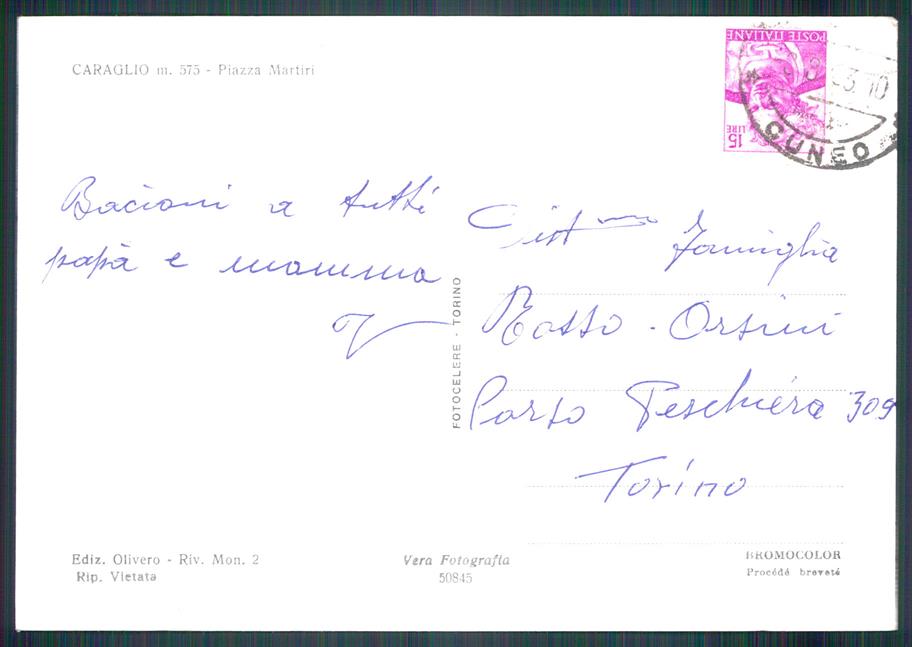 CARAGLIO m. 575 - Piazza Martiri
POSTE ITALIANE
15 LIRE
CUNEO
Bacioni a tutti
papà e mamma
Famiglia
Rosso - Orsini
Corso Peschiera 309
Torino
FOTOCELERE - TORINO
Ediz. Olivero - Riv. Mon. 2
Rip. Vietata
Vera Fotografia
50845
BROMOCOLOR
Procédé breveté